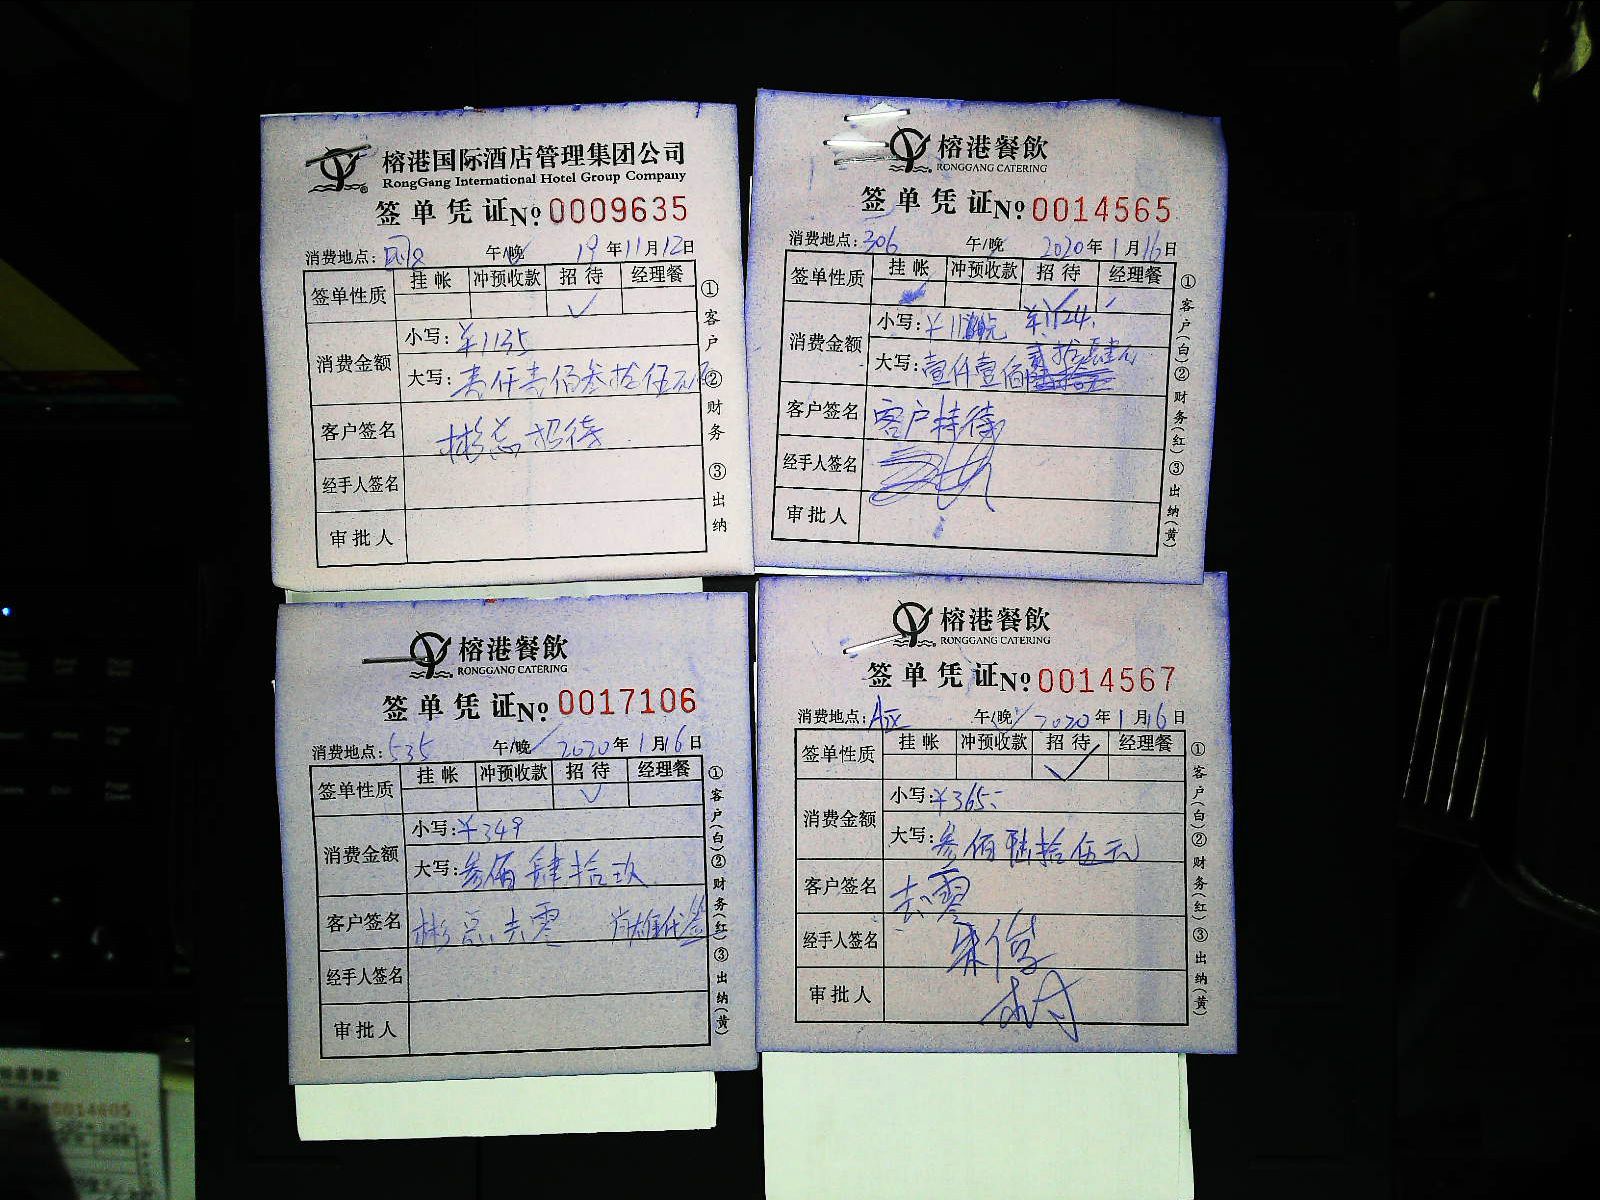 榕港国际酒店管理集团公司
RongGang International Hotel Group Company
签单凭证 No. 0009635
消费地点: 午/晚 19年11月12日
签单性质 挂帐 冲预收款 招待 经理餐
✓
消费金额 小写: ¥1135
大写: 壹仟壹佰叁拾伍元
客户签名 彬总招待
经手人签名
审批人
①客户 ②财务 ③出纳
榕港餐飲
RONGGANG CATERING
签单凭证 No. 0014565
消费地点: 306 午/晚 2020年1月16日
签单性质 挂帐 冲预收款 招待 经理餐
✓
消费金额 小写: ¥1124.-
大写: 壹仟壹佰贰拾肆元
客户签名 客户招待
经手人签名
审批人
①客户(白)②财务(红)③出纳(黄)
榕港餐飲
RONGGANG CATERING
签单凭证 No. 0017106
消费地点: 535 午/晚 2020年1月16日
签单性质 挂帐 冲预收款 招待 经理餐
✓
消费金额 小写: ¥349
大写: 叁佰肆拾玖
客户签名 彬总去零 肖雄代签
经手人签名
审批人
①客户(白)②财务(红)③出纳(黄)
榕港餐飲
RONGGANG CATERING
签单凭证 No. 0014567
消费地点: A区 午/晚 2020年1月16日
签单性质 挂帐 冲预收款 招待 经理餐
✓
消费金额 小写: ¥365.-
大写: 叁佰陆拾伍元
客户签名 去零
经手人签名
审批人
①客户(白)②财务(红)③出纳(黄)
0014605